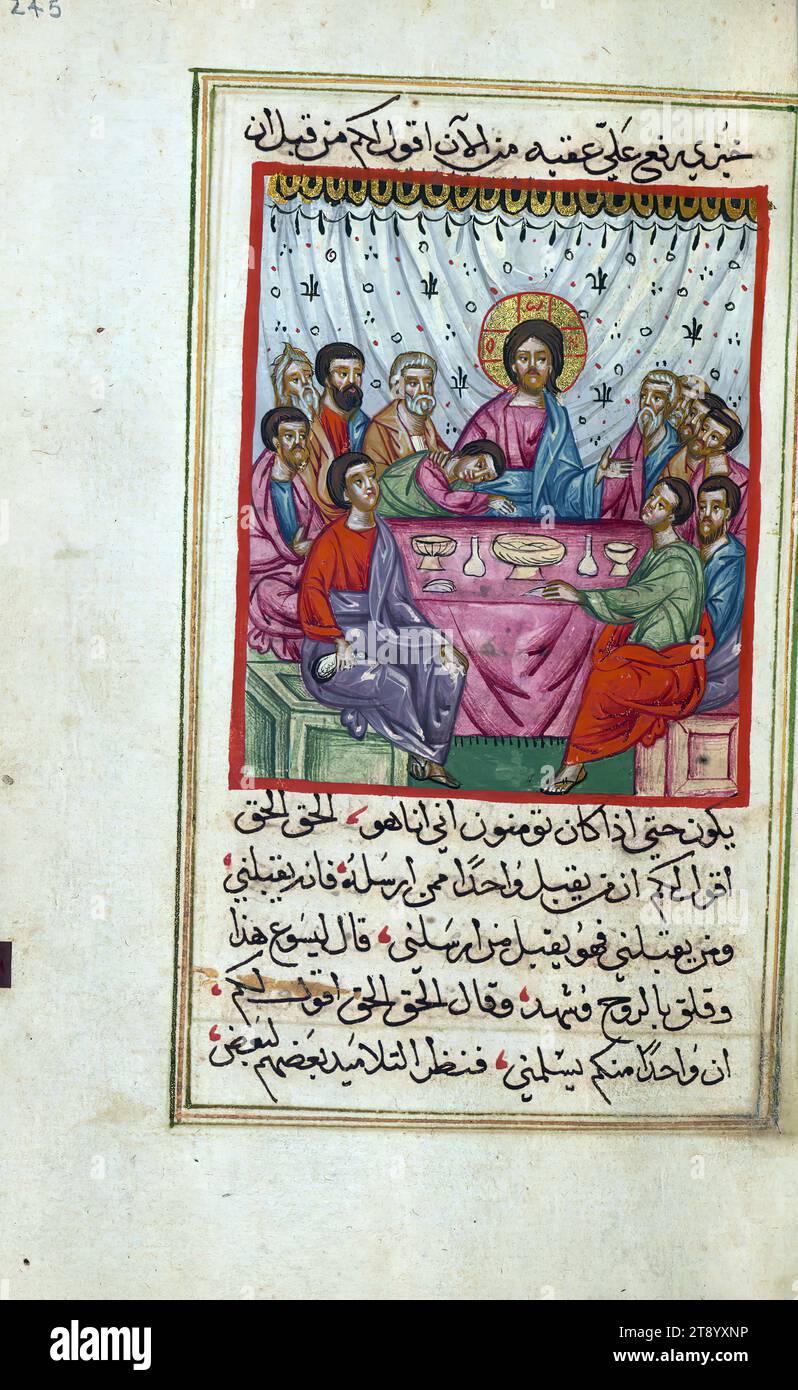 245
خبزي يرفع عَليّ عقبه من الآن اقول لكم من قبل ان
يكون حتي اذا كان تومنون اني انا هو، الحق الحق
اقول لكم ان من يقبل وَاحدًا ممن ارسله، فانه يقبلني،
ومن يقبلني فهوُ يقبل من ارسلني، قال ليسَوع هذا
وقلق بالروح وَشهد، وقال الحق الحق اقول لكم،
ان وَاحدًا منكم يسَلمني، فنظر التلاميد بعَضهم لبَعض،
alamy
Image ID: 2T8YXNP
www.alamy.com